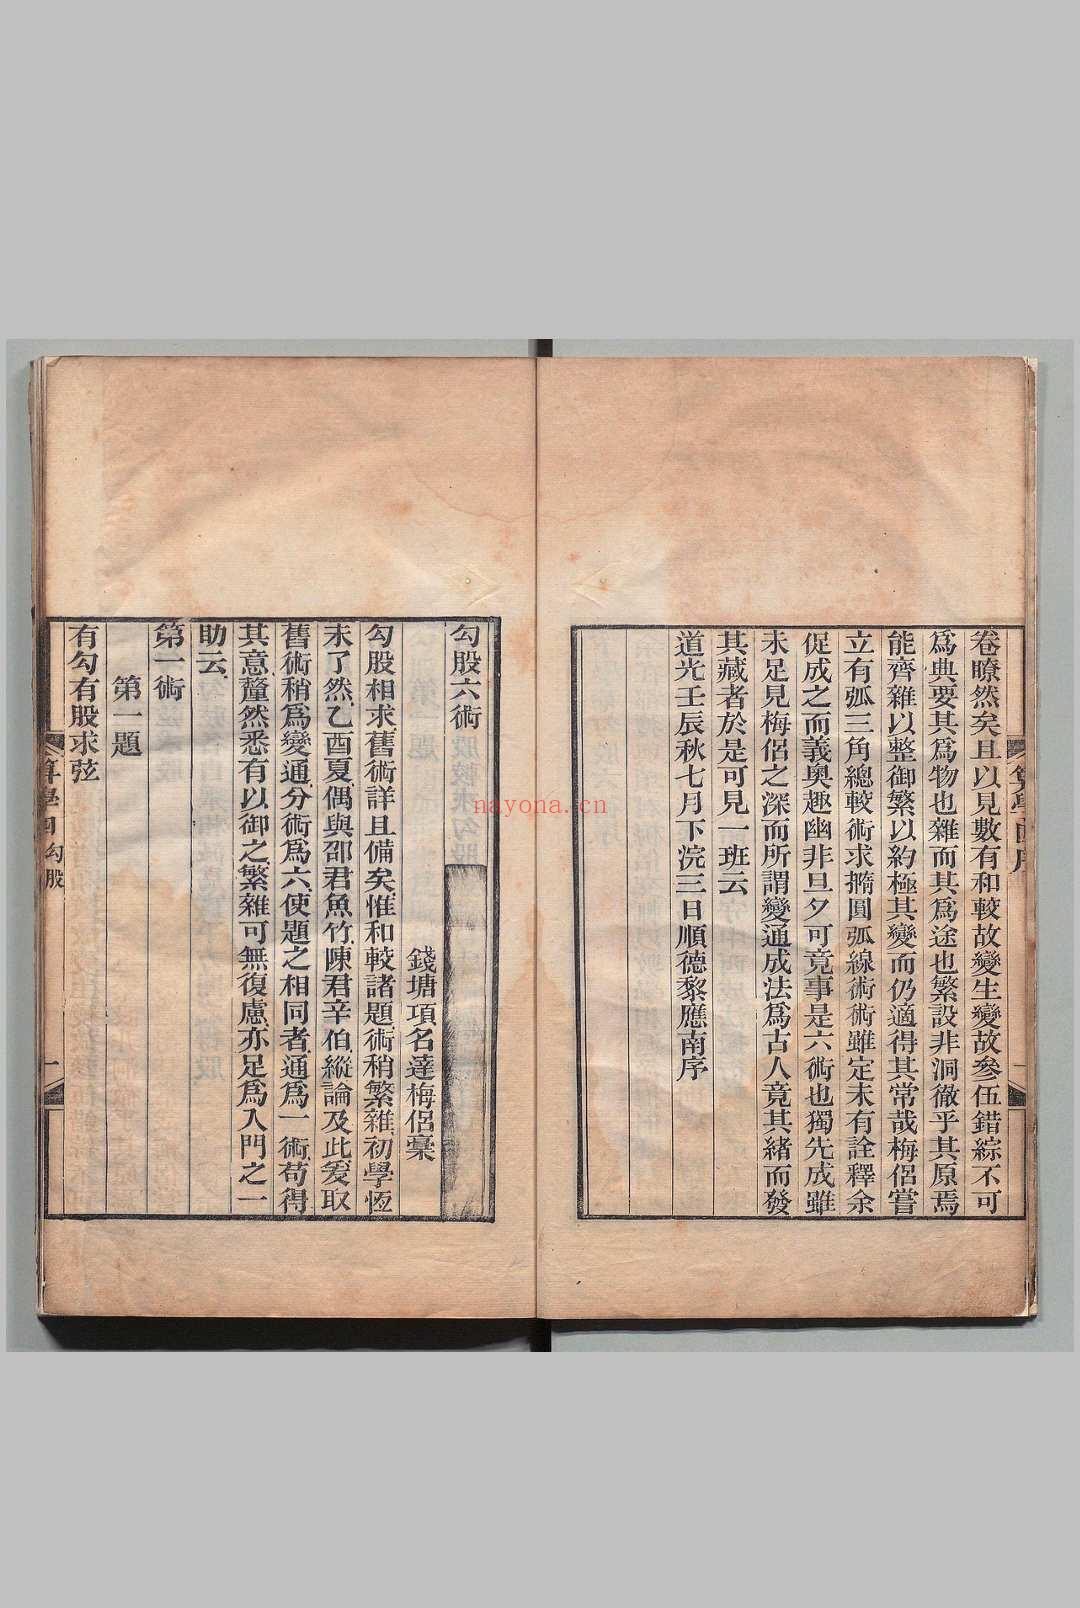 卷瞭然矣且以見數有和較故變生變故參伍錯綜不可
爲典要其爲物也雜而其爲途也繁設非洞徹乎其原焉
能齊雜以整御繁以約極其變而仍適得其常哉梅侶嘗
立有弧三角總較術求橢圓弧線術術雖定未有詮釋余
促成之而義奧趣幽非旦夕可竟事是六術也獨先成雖
未足見梅侶之深而所謂變通成法爲古人竟其緒而發
其藏者於是可見一班云
道光壬辰秋七月下浣三日順德黎應南序
勾股六術
錢塘項名達梅侶稾
勾股相求舊術詳且備矣惟和較諸題術稍繁雜初學恆
未了然乙酉夏偶與邵君魚竹陳君辛伯縱論及此爰取
舊術稍爲變通分術爲六使題之相同者通爲一術苟得
其意釐然悉有以御之繁雜可無復慮亦足爲入門之一
助云
第一術
第一題
有勾有股求弦
勾股
一
nayona.cn